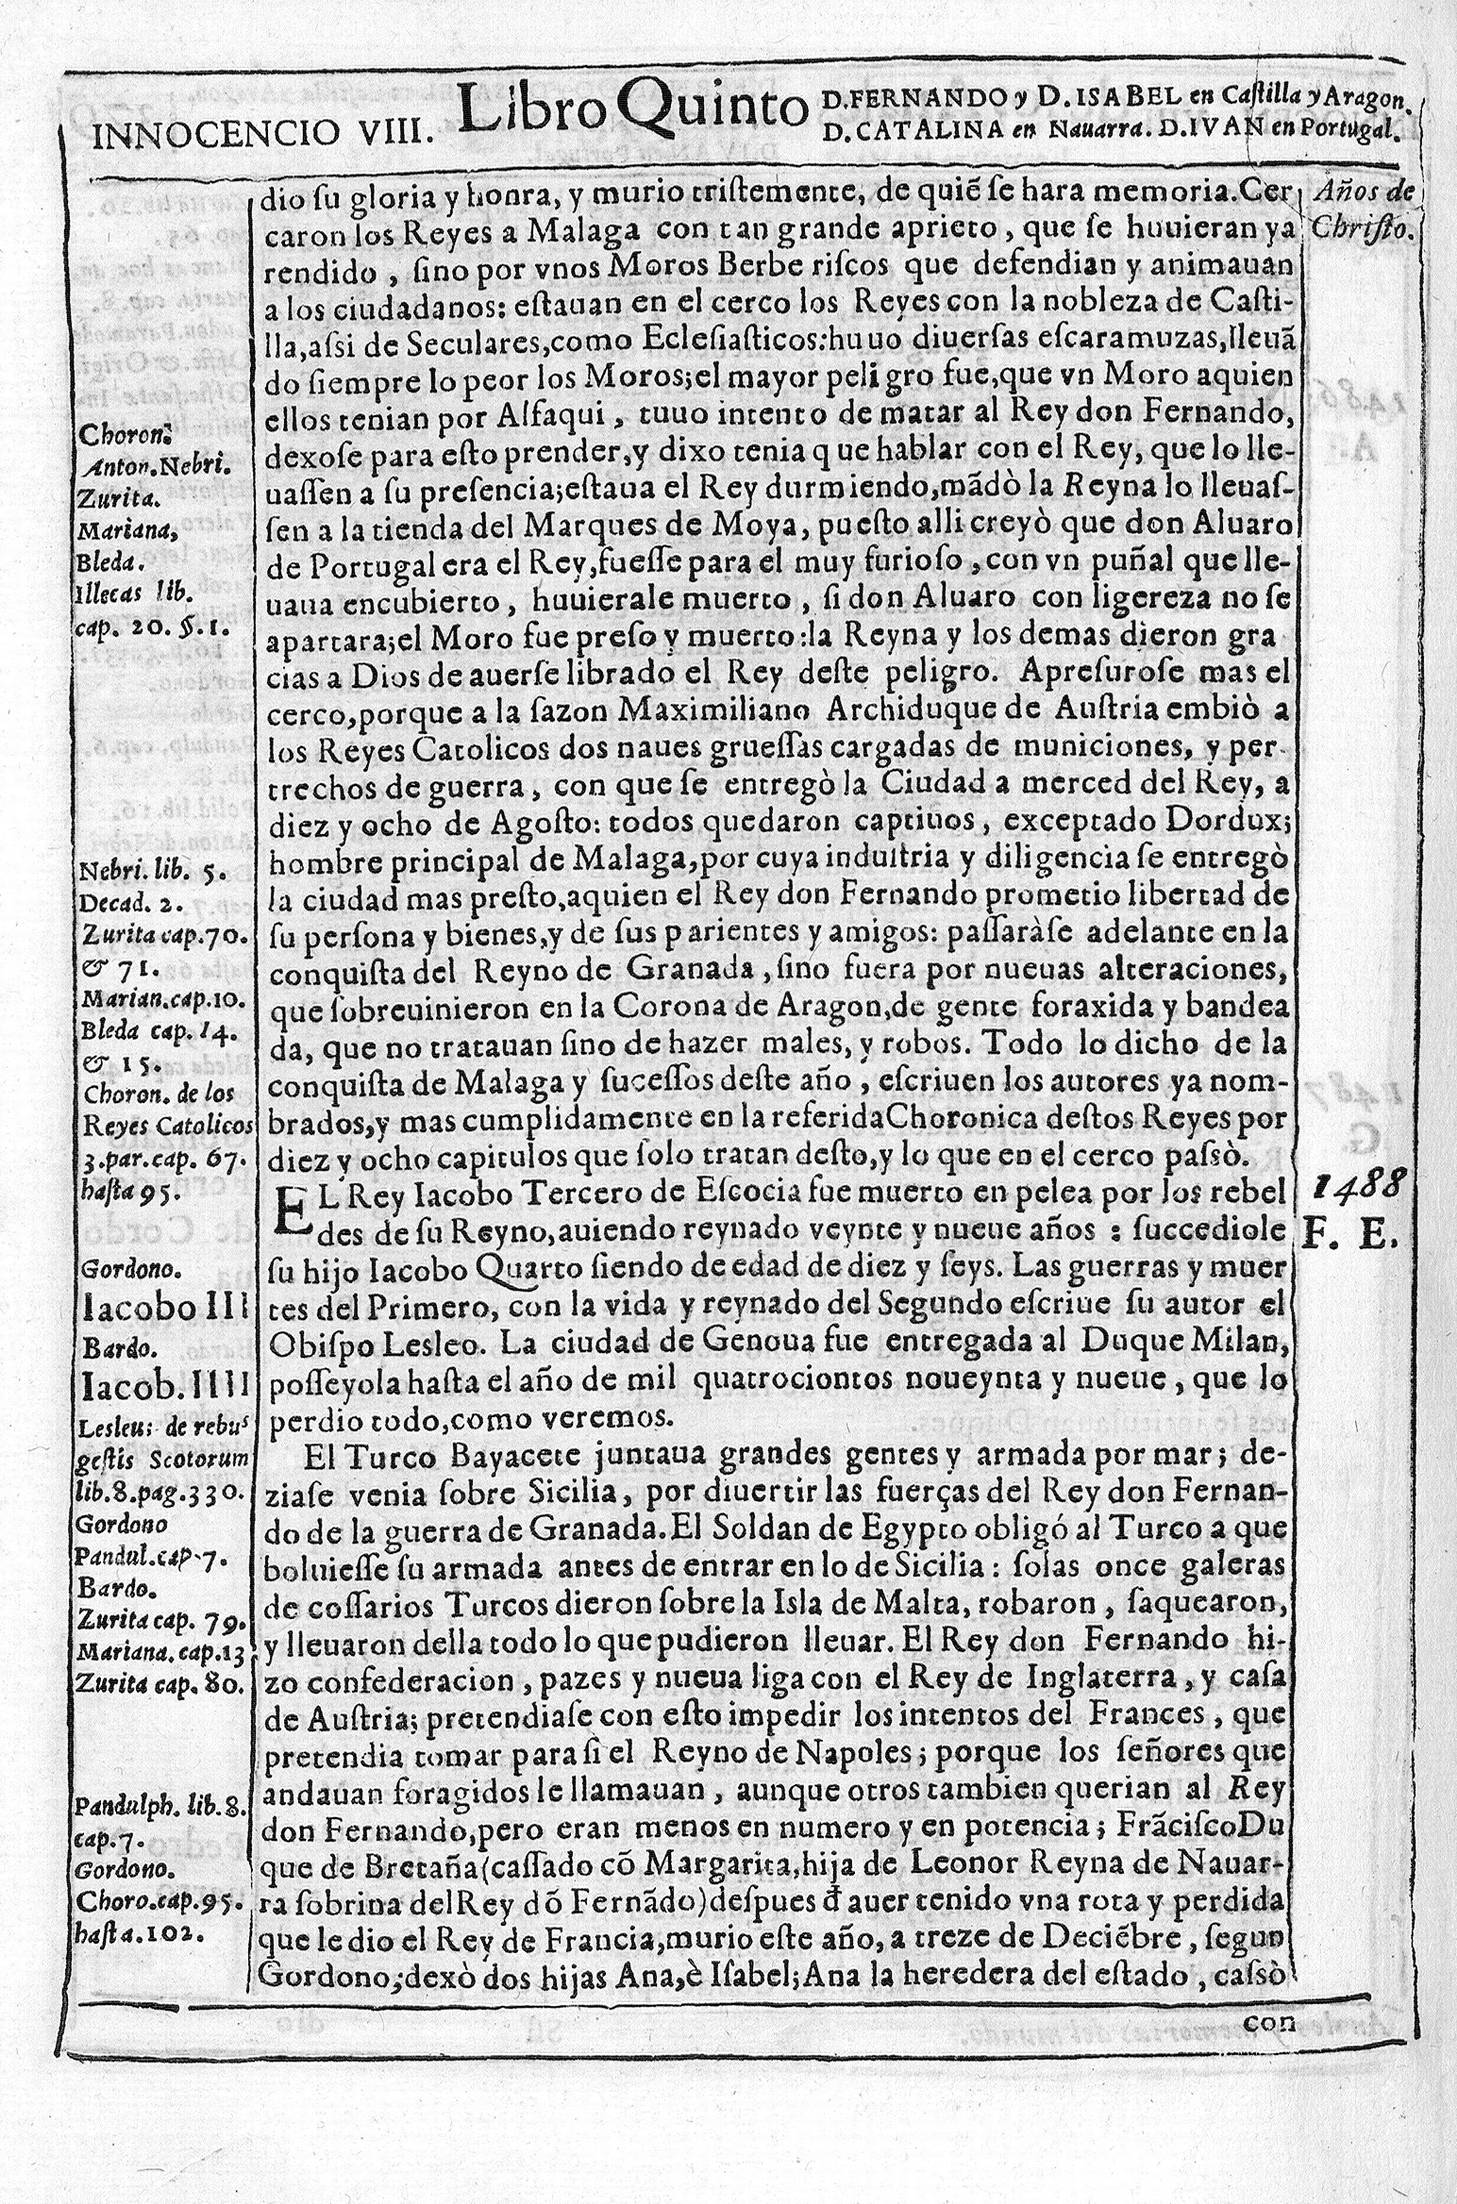 INNOCENCIO VIII. Libro Quinto D. FERNANDO y D. ISABEL en Castilla y Aragon.
D. CATALINA en Nauarra. D. IVAN en Portugal.
Años de
Christo.
dio su gloria y honra, y murio tristemente, de quiẽ se hara memoria. Cer
caron los Reyes a Malaga con tan grande aprieto, que se huuieran ya
rendido, sino por vnos Moros Berbe riscos que defendian y animauan
a los ciudadanos: estauan en el cerco los Reyes con la nobleza de Casti-
lla, assi de Seculares, como Eclesiasticos: huuo diuersas escaramuzas, lleuã
do siempre lo peor los Moros; el mayor peligro fue, que vn Moro aquien
ellos tenian por Alfaqui, tuuo intento de matar al Rey don Fernando,
dexose para esto prender, y dixo tenia que hablar con el Rey, que lo lle-
uassen a su presencia; estaua el Rey durmiendo, mãdò la Reyna lo lleuas-
sen a la tienda del Marques de Moya, puesto alli creyò que don Aluaro
de Portugal era el Rey, fuesse para el muy furioso, con vn puñal que lle-
uaua encubierto, huuierale muerto, si don Aluaro con ligereza no se
apartara; el Moro fue preso y muerto: la Reyna y los demas dieron gra
cias a Dios de auerse librado el Rey deste peligro. Apresurose mas el
cerco, porque a la sazon Maximiliano Archiduque de Austria embiò a
los Reyes Catolicos dos naues gruessas cargadas de municiones, y per-
trechos de guerra, con que se entregò la Ciudad a merced del Rey, a
diez y ocho de Agosto: todos quedaron captiuos, exceptado Dordux;
hombre principal de Malaga, por cuya industria y diligencia se entregò
la ciudad mas presto, aquien el Rey don Fernando prometio libertad de
su persona y bienes, y de sus parientes y amigos: passaràse adelante en la
conquista del Reyno de Granada, sino fuera por nueuas alteraciones,
que sobreuinieron en la Corona de Aragon, de gente foraxida y bandea
da, que no tratauan sino de hazer males, y robos. Todo lo dicho de la
conquista de Malaga y sucessos deste año, escriuen los autores ya nom-
brados, y mas cumplidamente en la referida Choronica destos Reyes por
diez y ocho capitulos que solo tratan desto, y lo que en el cerco passò.
Choron.
Anton. Nebri.
Zurita.
Mariana,
Bleda.
Illecas lib.
cap. 20. §. 1.
Nebri. lib. 5.
Decad. 2.
Zurita cap. 70.
& 71.
Marian. cap. 10.
Bleda cap. 14.
& 15.
Choron. de los
Reyes Catolicos
3. par. cap. 67.
hasta 95.
1488
F. E.
EL Rey Iacobo Tercero de Escocia fue muerto en pelea por los rebel
des de su Reyno, auiendo reynado veynte y nueue años: succediole
su hijo Iacobo Quarto siendo de edad de diez y seys. Las guerras y muer
tes del Primero, con la vida y reynado del Segundo escriue su autor el
Obispo Lesleo. La ciudad de Genoua fue entregada al Duque Milan,
posseyola hasta el año de mil quatrociontos noueynta y nueue, que lo
perdio todo, como veremos.
El Turco Bayacete juntaua grandes gentes y armada por mar; de-
ziase venia sobre Sicilia, por diuertir las fuerças del Rey don Fernan-
do de la guerra de Granada. El Soldan de Egypto obligó al Turco a que
boluiesse su armada antes de entrar en lo de Sicilia: solas once galeras
de cossarios Turcos dieron sobre la Isla de Malta, robaron, saquearon,
y lleuaron della todo lo que pudieron lleuar. El Rey don Fernando hi-
zo confederacion, pazes y nueua liga con el Rey de Inglaterra, y casa
de Austria; pretendiase con esto impedir los intentos del Frances, que
pretendia tomar para si el Reyno de Napoles; porque los señores que
andauan foragidos le llamauan, aunque otros tambien querian al Rey
don Fernando, pero eran menos en numero y en potencia; Frãcisco Du
que de Bretaña (cassado cõ Margarita, hija de Leonor Reyna de Nauar-
ra sobrina del Rey dõ Fernãdo) despues đ auer tenido vna rota y perdida
que le dio el Rey de Francia, murio este año, a treze de Deciẽbre, segun
Gordono; dexò dos hijas Ana, è Isabel; Ana la heredera del estado, cassò
Gordono.
Iacobo III
Bardo.
Iacob. IIII
Lesleus de rebus
gestis Scotorum
lib. 8. pag. 330.
Gordono
Pandul. cap. 7.
Bardo.
Zurita cap. 79.
Mariana. cap. 13
Zurita cap. 80.
Pandulph. lib. 8.
cap. 7.
Gordono.
Choro. cap. 95.
hasta. 102.
con